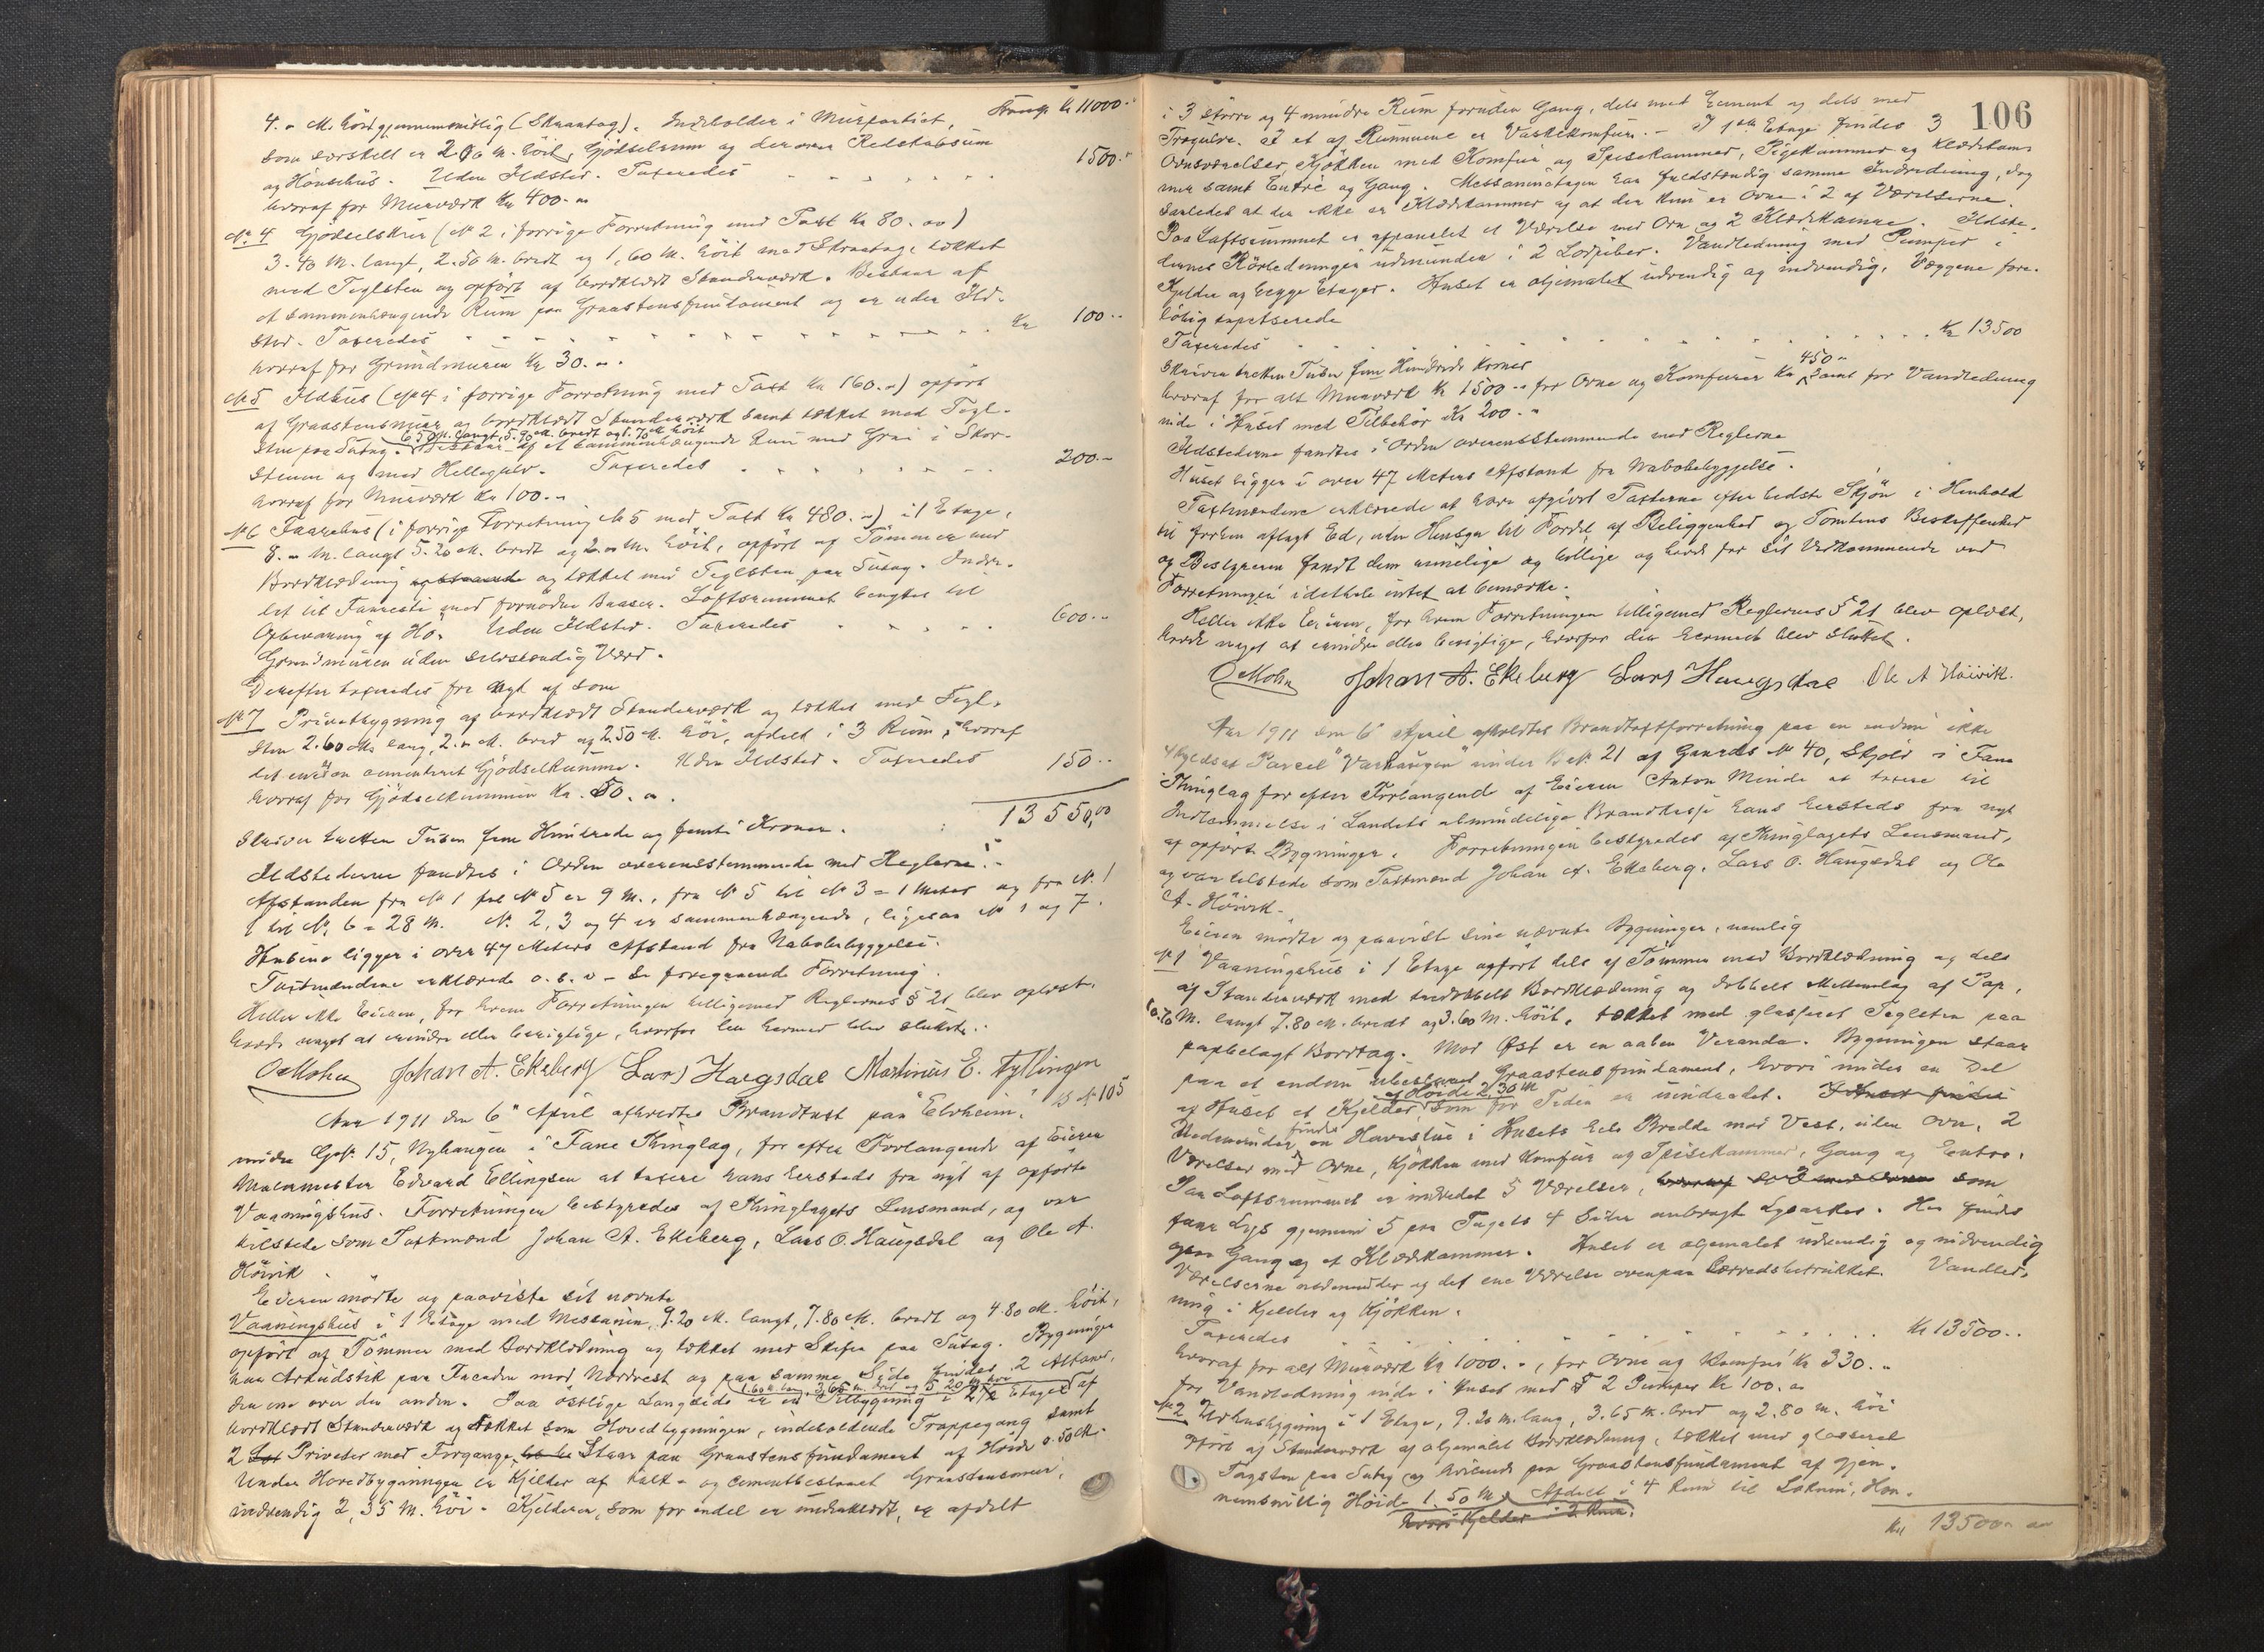 Transp. Kr 11000.-
4.- M. höit gjennemsnitlig (Skraatag). Indeholder i Murpartiet,
som særskilt er 2.00 M. höit, Gjödselrum og derover Redskabsrum
og Hönsehus. Uden Ildsted. Taxeredes 1500.-
hvoraf for Murværk Kr 400.-
No 4 Gjödselskur (No 2 i forrige Forretning med Taxt Kr 80.00)
3.40 M. langt, 2.50 M. bredt og 1,60 M. höit med Skraatag, tækket
med Teglsten og opfört af bordklædt Stenderværk. Bestaar af
et sammenhængende Rum paa Graastensfundament og er uden Ild-
sted. Taxeredes Kr 100.-
hvoraf for Grundmuren Kr 30.-.
No 5 Ildhus (No 4 i forrige Forretning med Taxt Kr 160.-) opfört
af Graastensmur og bordklædt Stenderværk samt tækket med Tegl-
6.50 M. langt, 5.90 M. bredt og 1.70 M. höit
sten paa Sutag. Bestaar af et sammenhængende Rum med Grue i Skor-
stenen og med Hellegulv. Taxeredes 200.-
hvoraf for Murværk Kr 100.-
No 6 Faarehus (i forrige Forretning No 5 med Taxt Kr 480.-) i 1 Etage,
8.- M. langt 5.20 M. bredt og 2.- M. höit, opfört af Tömmer med
Bordklædning og tækket med Teglsten paa Sutag. Inder-
let til Faaresti med fornödne Baaser. Loftsrummet benyttes til
Opbevaring af Hö. Uden Ildsted. Taxeredes 600.-
Grundmuren uden selvstændig Værd.
Derefter taxeredes fra nyt af som
No 7 Privetbygning af bordklædt Stenderværk og tækket med Tegl-
sten 2.60 M. lang, 2.- M. bred og 2.50 M. höi, afdelt i 3 Rum, hvoraf
det ene en cementeret Gjödselkumme. Uden Ildsted. Taxeredes 150.-
hvoraf for Gjödselkummen Kr. 50.-.
13550,00
Skriver tretten Tusen fem Hundrede og femti Kroner.
Ildstederne fandtes i Orden overensstemmende med Reglerne.-
Afstanden fra No 1 til No 5 er 9 M., fra No 5 til No 3 = 1 Meter og fra No 1
til No 6 = 28 M. No. 2, 3 og 4 er sammenhængende, ligesaa No 1 og 7.
Husene ligger i over 47 Meters Afstand fra Nabobebyggelse.
Taxtmændene erklærede o.s.v. - se foregaaende Forretning.
Heller ikke Eieren, for hvem Forretningen tilligemed Reglernes § 21 blev oplæst,
havde noget at erindre eller berigtige, hvorfor den hermed blev sluttet.
O Mohn Johan A. Ekeberg Lars Haugsdal Martinus E. Fyllingen
B No 105
Aar 1911 den 6te April afholdtes Brandtaxt paa "Elvheim,"
under Gno. 15, Nyhaugen i Fane Thinglag, for efter Forlangende af Eieren
Malermester Edvard Ellingsen at taxere hans hersteds fra nyt af opförte
Vaaningshus. Forretningen bestyredes af Thinglagets Lensmand, og var
tilstede som Taxtmænd Johan A. Ekeberg, Lars O. Haugsdal og Ole A.
Höivik.
Eieren mödte og paaviste sit nævnte
Vaaningshus i 1 Etage med Messanin, 9.20 M. langt, 7.80 M. bredt og 4.80 M. höit,
opfört af Tömmer med Bordklædning og tækket med Skifer paa Sutag. Bygningen
har Arkudstik paa Facaden mod Nordvest og paa samme Side findes 2 Altaner,
den ene over den anden. Paa östlige Langside er en Tilbygning i 2½ Etager af
bordklædt Stenderværk og tækket som Hovedbygningen, indeholdende Trappegang samt
2 Priveter med Forgange. Staar paa Graastensfundament af Höide 0.50 M.
Under Hovedbygningen er Kjelder af kalk- og cementbestrøget Graastensmur,
indvendig 2,35 M. höi. Kjelderen, som for endel er underklædt, er afdelt
106
i 3 större og 4 mindre Rum foruden Gang, dels med Cement og dels med
Trægulve. I et af Rummene er Vaskekomfur. - I 1ste Etage findes 3
Ovnsværelser, Kjökken med Komfur og Spisekammer, Pigekammer og Klædekam-
mer samt Entré og Gang. Messaninetagen har fuldstændig samme Indredning, dog
saaledes at der ikke er Klædekammer og at der kun er Ovne i 2 af Værelserne.
Paa Loftsrummet er afpanelet et Værelse med Ovn og 2 Klædekamre. Ildste-
dernes Rörledninger udmunder i 2 Lodpiber. Vandledning med Pumper i
Kjelder og begge Etager. Huset er oljemalet udvendig og indvendig, Væggene fore-
löbig tapetserede
Taxeredes Kr 13500
Skriver tretten Tusen fem Hundrede Kroner
450.-
hvoraf for alt Murværk Kr 1500.- for Ovne og Komfurer Kr samt for Vandledning
inde i Huset med Tilbehör Kr 200.-
Ildstederne fandtes i Orden overensstemmende med Reglerne
Huset ligger i over 47 Meters Afstand fra Nabobebyggelse.
Taxtmændene erklærede at have afgivet Taxterne efter bedste Skjön i Henhold
til forhen aflagt Ed, uden Hensyn til Fordel af Beliggenhed og Tomtens Beskaffenhed
og Bestyreren fandt dem rimelige og billige og havde for sit Vedkommende ved
Forretningen i det hele intet at bemærke.
Heller ikke Eieren, for hvem Forretningen tilligemed Reglernes § 21 blev oplæst,
havde noget at erindre eller berigtige, hvorfor den hermed blev sluttet.
O Mohn Johan A. Ekeberg Lars Haugsdal Ole A Höivik.
Aar 1911 den 6te April afholdtes Brandtaxtforretning paa en endnu ikke
skyldsat Parcel "Varhaugen" under B.No. 21 af Gaards No 40, Skjold i Fane
Thinglag for efter Forlangende af Eieren Anton Minde at taxere til
Indlemmelse i Landets almindelige Brandkasse hans hersteds fra nyt
af opförte Bygninger. Forretningen bestyredes af Thinglagets Lensmand,
og var tilstede som Taxtmænd Johan A. Ekeberg, Lars O. Haugsdal og Ole
A. Höivik.
Eieren mödte og paaviste sine nævnte Bygninger, nemlig
No 1 Vaaningshus i 1 Etage opfört dels af Tömmer med Bordklædning og dels
af Stenderværk med tredobbelt Bordklædning og dobbelt Mellemlag af Pap,
10.70 M. langt 7.80 M. bredt og 3.60 M. höit, tækket med glasseret Teglsten paa
papbelagt Bordtag. Mod Öst er en aaben Veranda. Bygningen staar
paa et endnu ubestrøget Graastensfundament, hvori under en Del
af Höide 2,30 M
af Huset et Kjelder, som for Tiden er uindredet.
findes
Nedenunder en Havestue i Husets hele Bredde mod Vest, uden Ovn, 2
Værelser med Ovne, Kjökken med Komfur og Spisekammer, Gang og Entre.
Paa Loftsrummet er indredet 5 Værelser, som
faar Lys gjennem 5 paa Tagets 4 Sider anbragte Lysarker. Her findes
Gang og et Klædekammer. Huset er oljemalet udvendig og indvendig
Værelserne nedenunder og det ene Værelse ovenpaa lærredsbetrukket. Vandled-
ning i Kjelder og Kjökken.
Taxeredes Kr 13500.-
hvoraf for alt Murværk Kr 1000.-, for Ovne og Komfur Kr 330.-
for Vandledning inde i Huset med 2 Pumper Kr 100.-
No 2 Udhusbygning i 1 Etage, 9.20 M. lang, 3.65 M. bred og 2.80 M. höi
opfört af Stenderværk af oljemalet Bordklædning, tækket med glasseret
Tagsten paa Sutag og hvilende paa Graastensfundament af gjen-
nemsnitlig Höide 1.50 M. Afdelt i 4 Rum til Lokum, Höns-
hvori Kjelder i 2 Rum.
Kr 13500.-